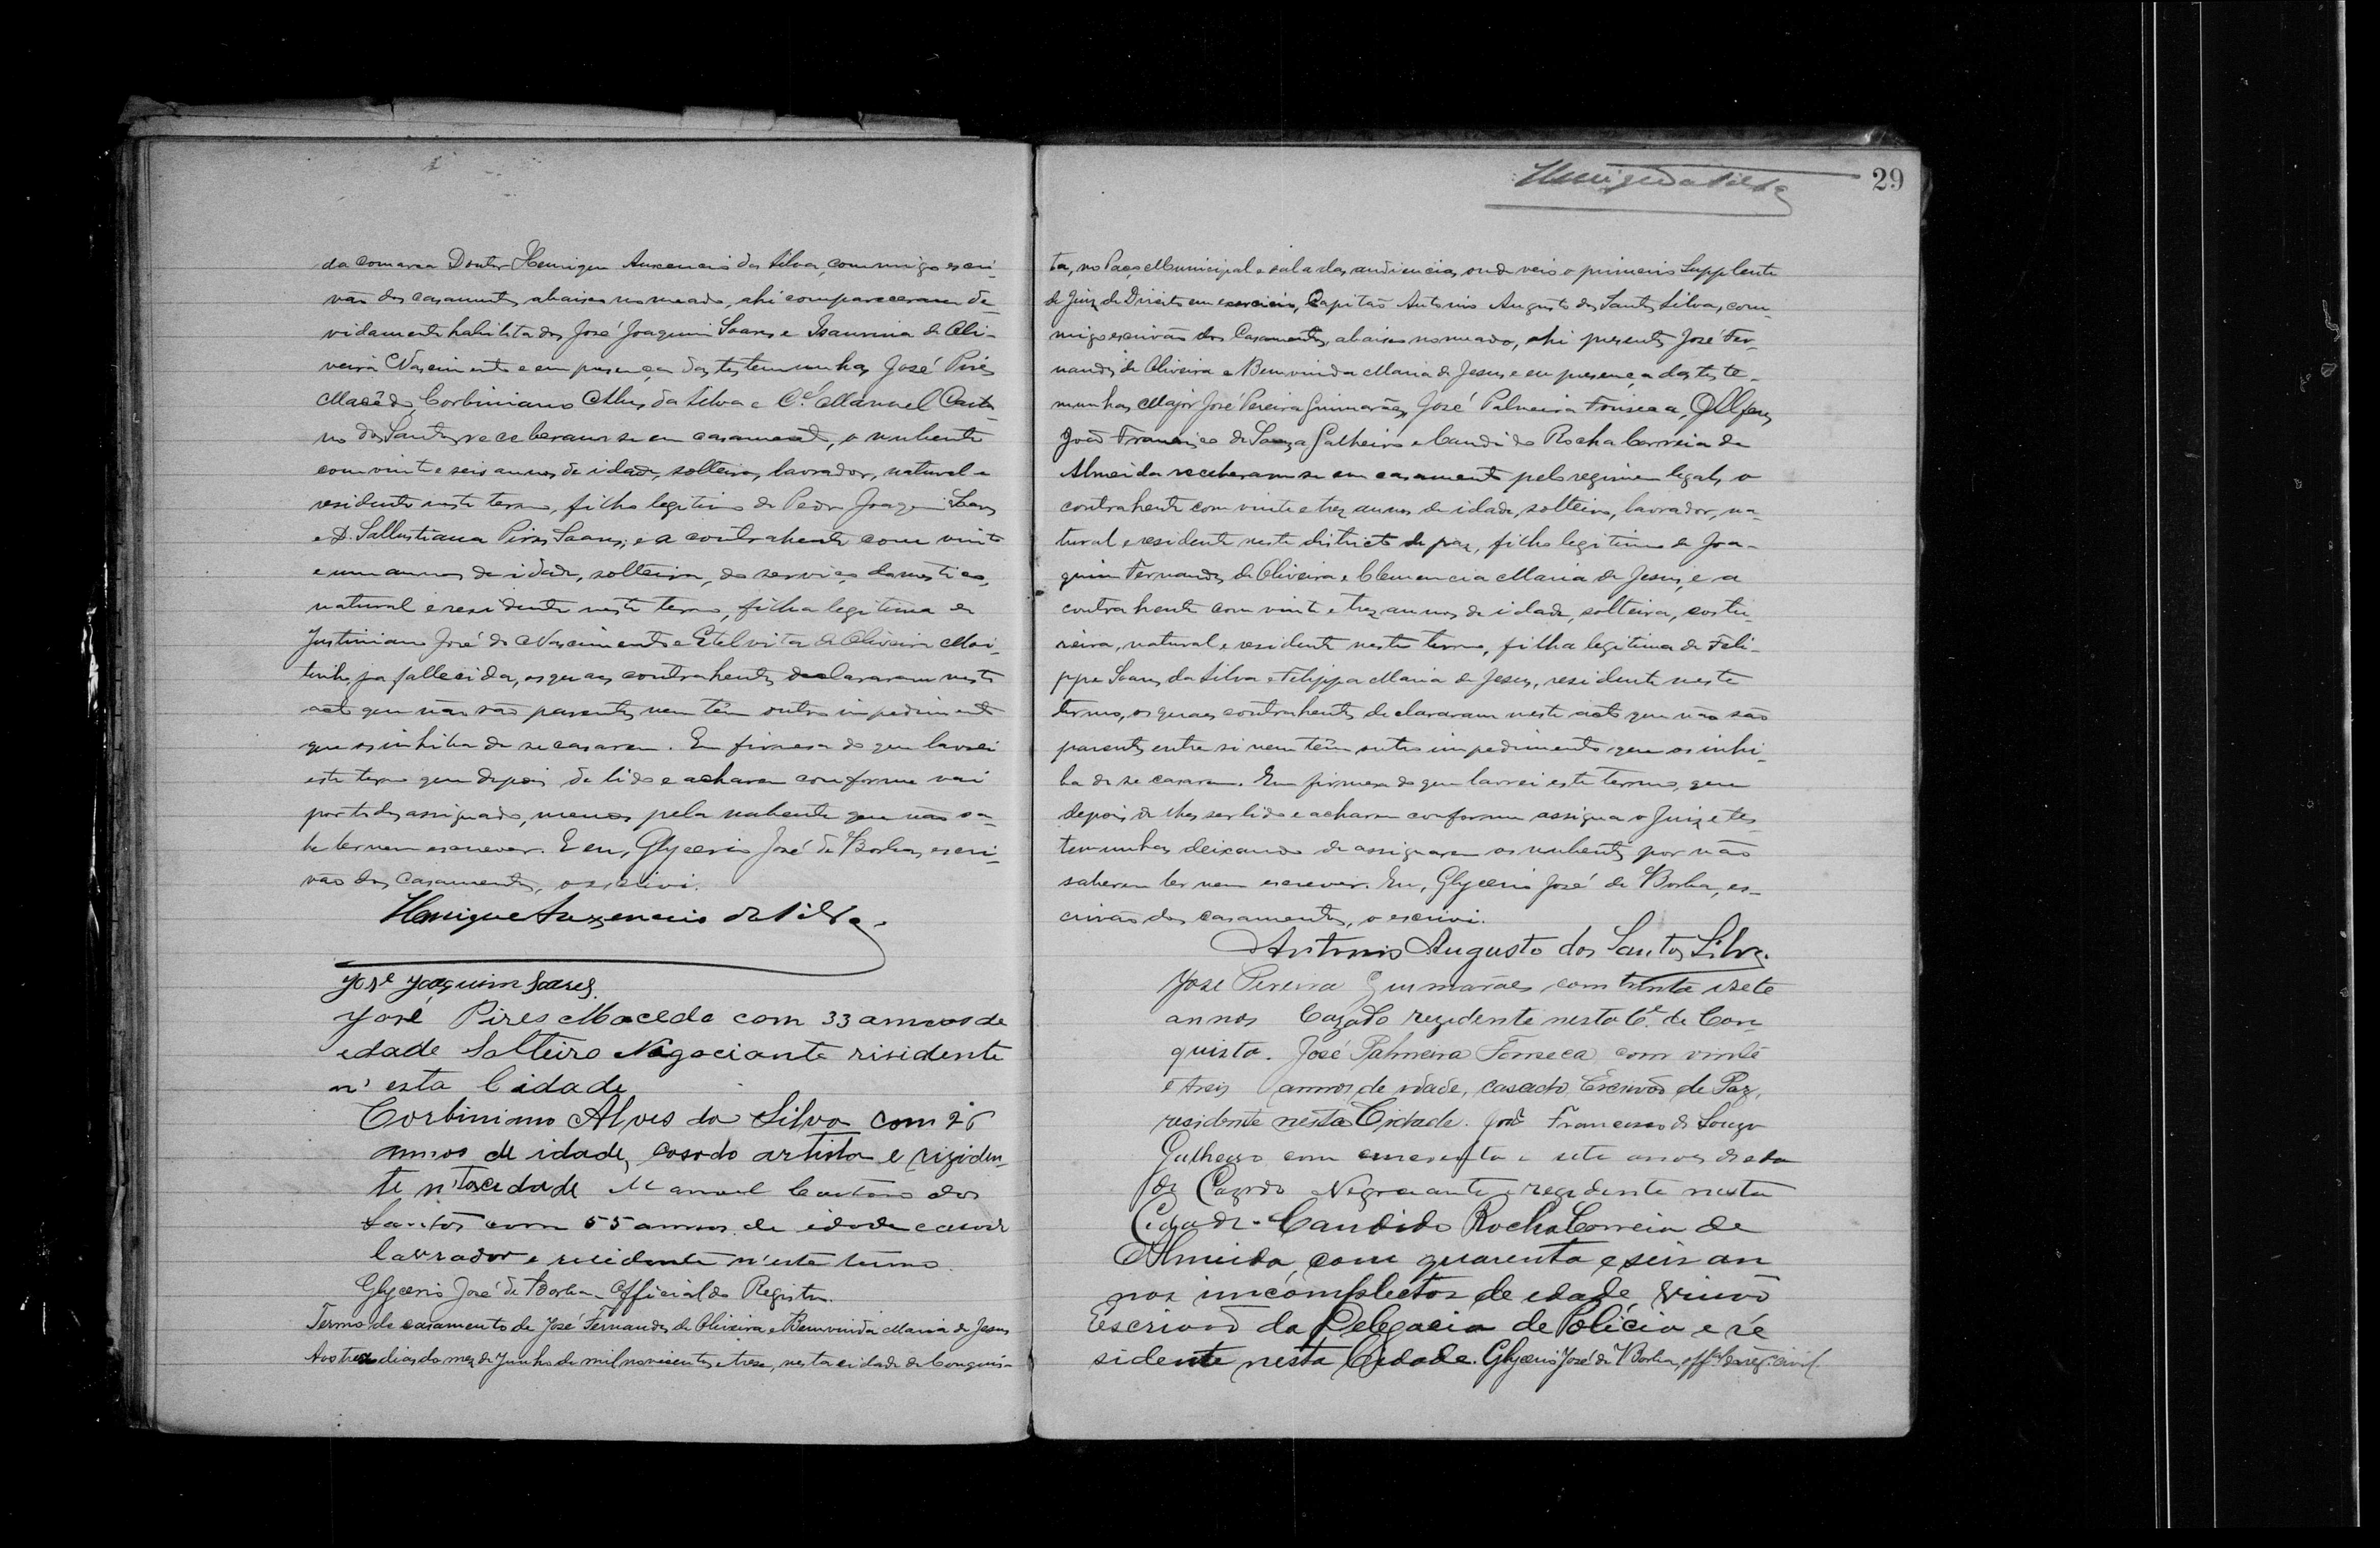 da comarca Doutor Henrique Auxencio da Silva, commigo escri-
vão dos casamentos abaixo nomeado, ahi compareceram de-
vidamente habilitados José Joaquim Soares e Isaurina de Oli-
veira Nascimento e em presença das testemunhas José Pires
Macêdo, Corbiniano Alves da Silva e C.el Manuel Caeta
no dos Santos receberam-se em casamento, o nubente
com vinte e seis annos de idade, solteiro, lavrador, natural e
residente neste termo, filho legitimo de Pedro Joaquim Soares
e D. Sallustiana Pires Soares; e a contrahente com vinte
e um annos de idade, solteira, do serviço domestico,
natural e residente neste termo, filha legitima de
Justiniano José do Nascimento e Etelvita de Oliveira Moi-
tinho, ja fallecida, os quaes contrahentes declararam neste
acto que não são parentes nem têm outro impedimento
que os inhiba de se casarem. Em firmesa do que lavrei
este termo que depois de lido e acharem conforme vai
por todos assignado, menos pela nubente que não sa-
be ler nem escrever. E eu, Glycerio José de Borba, escri-
vão dos casamentos, o escrivi.
Henrique Auxencio da Silva.
José Joaquim Soares.
José Pires Macedo com 33 annos de
edade Solteiro Negociante risidente
n'esta Cidade
Corbiniano Alves da Silva com 26
annos de idade, casado artista e riziden-
te n'esta cidade Manoel Caetano dos
Santos com 55 annos de idade casado
lavrador e residente n'este termo.
Glycerio José de Borba Official do Registro.
Termo de casamento de José Fernandes de Oliveira e Bemvinda Maria de Jesus
Aos tres dias do mez de Junho de mil novicentos e trese, nesta cidade de Conquis-
Henrique da Silva
29
ta, no Paço Municipal e sala das audiencias, onde veio o primeiro Supplente
de Juiz de Direito em exercicio, Capitão Antonio Augusto dos Santos Silva, com-
migo escrivão dos Casamentos, abaixo nomeado, ahi presentes José Fer-
nandes de Oliveira e Bemvinda Maria de Jesus e em presença das teste-
munhas Major José Pereira Guimarães, José Palmeira Fonseca, Alferes
João Francisco de Souza Galheiro e Candido Rocha Correia de
Almeida receberam-se em casamento pelo regimen legal, o
contrahente com vinte e trez annos de idade, solteiro, lavrador, na-
tural e residente neste districto de paz, filho legitimo de Joa-
quim Fernandes de Oliveira e Clemencia Maria de Jesus, e a
contrahente com vinte e trez annos de idade, solteira, costu-
reira, natural e residente neste termo, filha legitima de Feli-
ppe Soares da Silva e Felippa Maria de Jesus, residente neste
termo, os quaes contrahentes declararam neste acto que não são
parentes entre si nem têm outro impedimento que os inhi-
ba de se casarem. Em firmesa do que lavrei este termo, que
depois de lhes ser lido e acharem conforme assigna o Juiz e tes-
temunhas deixando de assignarem os nubentes por não
saberem ler nem escrever. Eu, Glycerio José de Borba, es-
crivão dos casamentos, o escrivi.
Antonio Augusto dos Santos Silva.
José Pereira Guimarães com trinta e sete
annos Cazado rezidente nesta C.e de Con-
quista. José Palmeira Fonseca com vinte
e treis annos de idade, casado Escrivão de Paz,
residente nesta Cidade. João Francisco de Souza
Galheiro com cincoenta e sete annos de eda
de Cazado Negociante e rezidente nesta
Cidade. Candido Rocha Correia de
Almeida, com quarenta e seis an
nos imcompletos de edade, viuvo
Escrivão da Delegacia de Policia e re
sidente nesta Cidade. Glycerio José de Borba, off.al do reg.o civil.